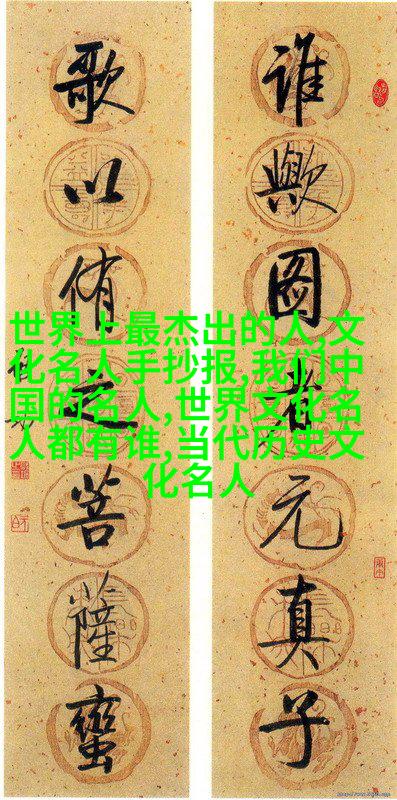 谁歟图者元真子
歌以侑之菩薩蠻
世界上最杰出的人,文
化名人手抄报,我们中
国的名人,世界文化名
人都有谁,当代历史文
化名人